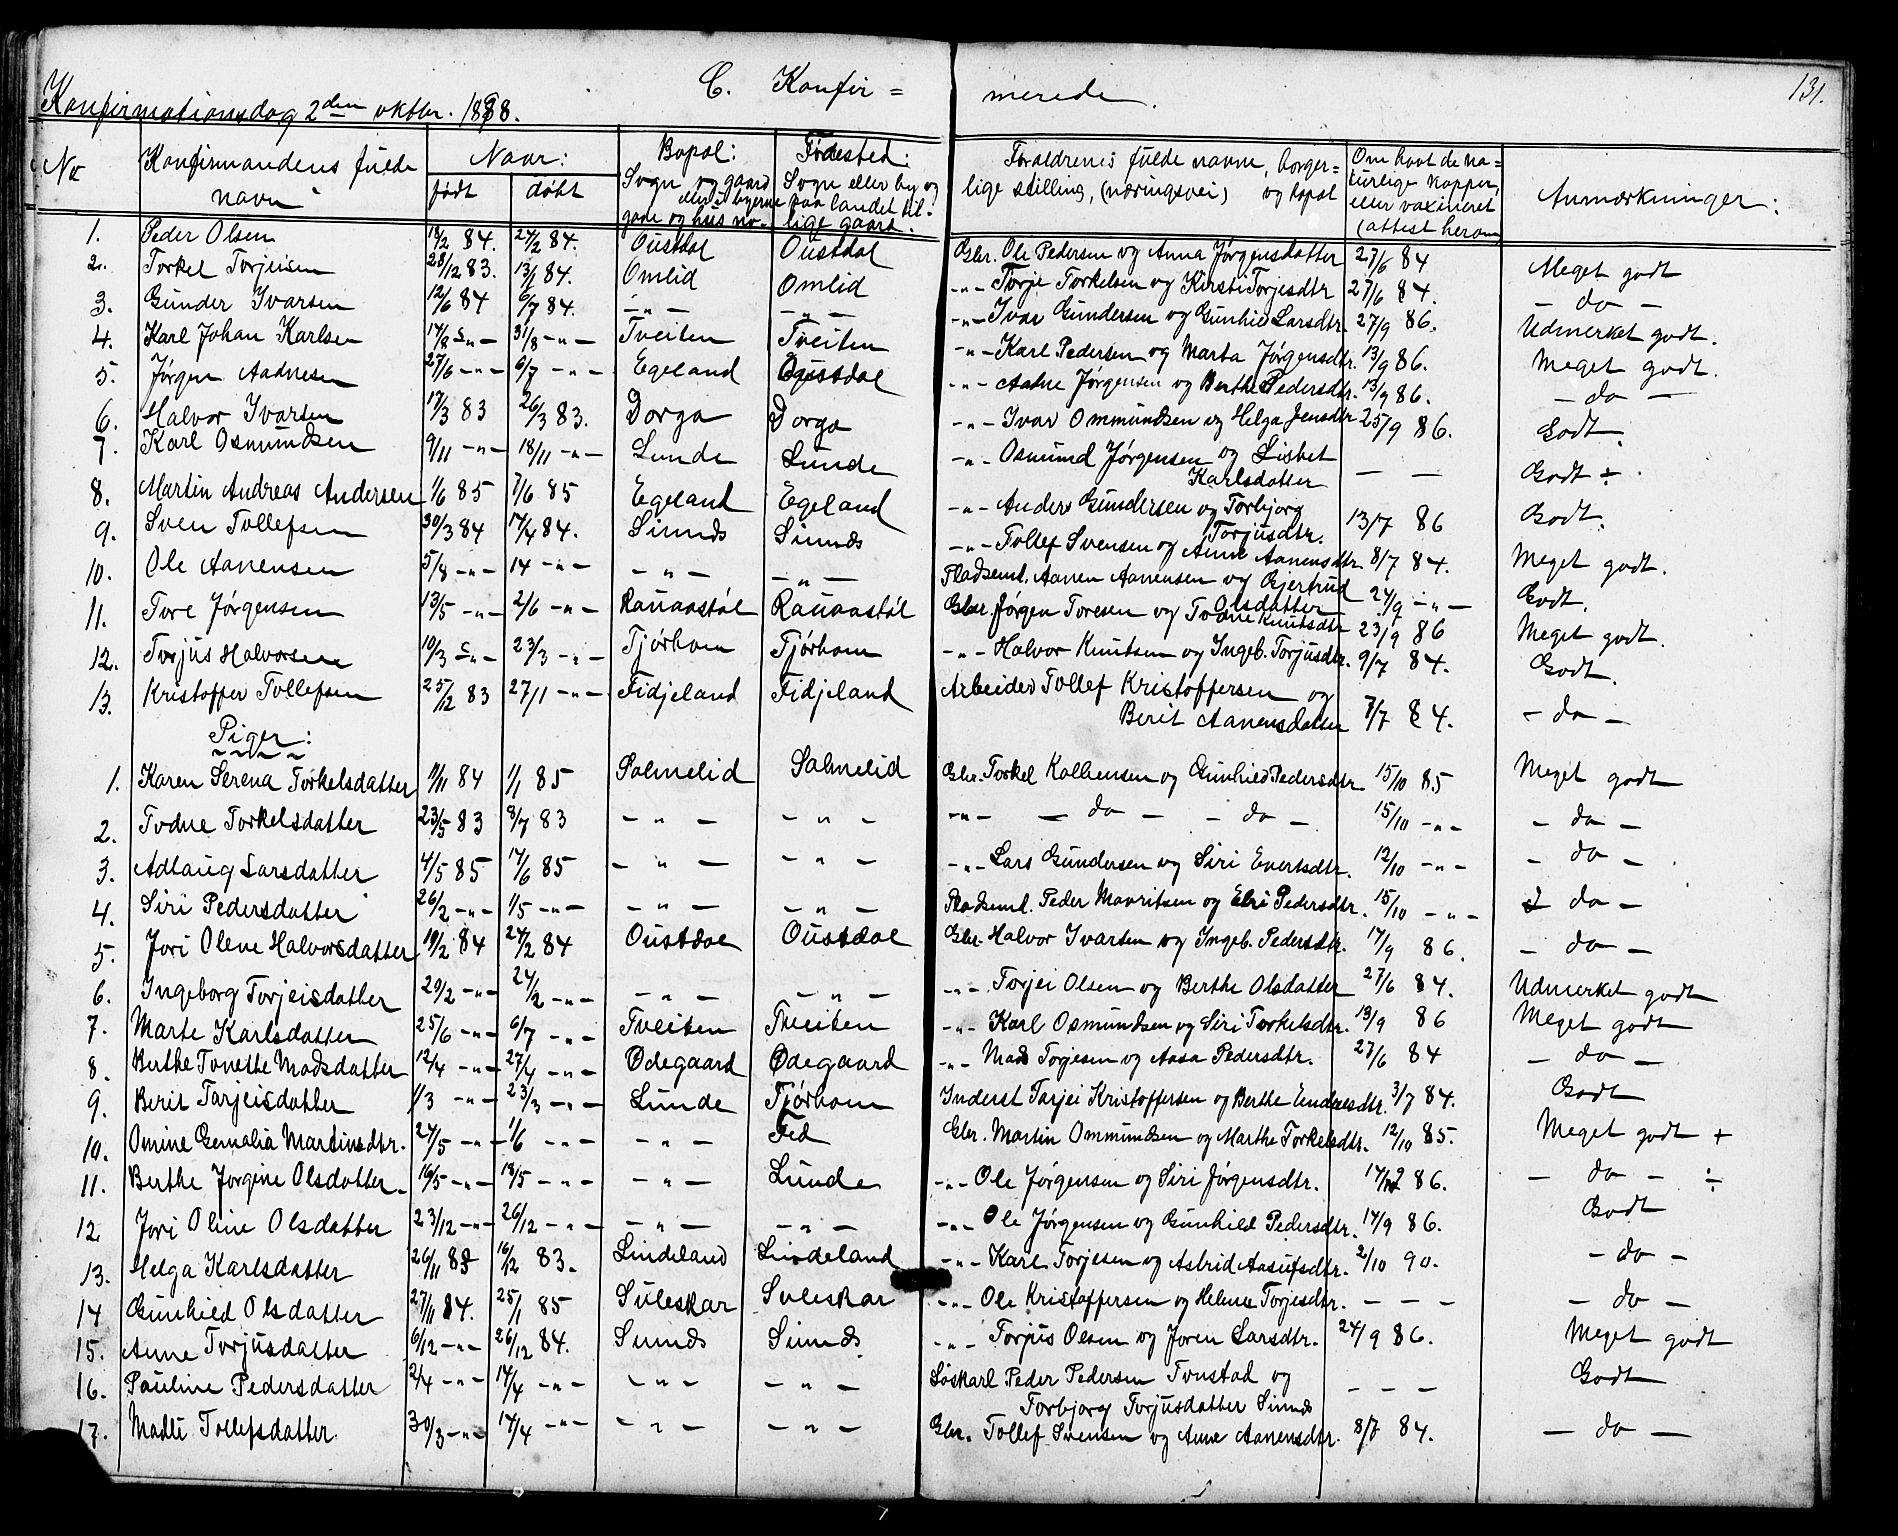 C. Konfir = merede.
131.
Konfirmationsdag 2den oktbr. 1898.
No
Konfirmandens fulde navn
Naar:
født
døbt
Bopæl:
Sogn og gaard
eller i byerne
gade og hus no.
Fødested:
Sogn eller by og
paa landet til-
lige gaard.
Forældrenes fulde navne, borger=
lige stilling, (næringsvei) og bopæl
Om havt de na=
turlige kopper,
eller vaxineret
(attest herom)
Anmærkninger:
1. Peder Olsen 18/2 84. 24/2 84. Oustdal Oustdal Gbr. Ole Pedersen og Anna Jørgensdatter 27/6 84 Meget godt
2. Torkel Torjeisen 28/12 83. 13/1 84. Omlid Omlid -"- Torje Torkelsen og Kirsti Torjesdtr 27/6 84. - do -
3. Gunder Ivarsen 12/6 84 6/7 84. -"- -"- -"- Ivar Gundersen og Gunhild Larsdtr. 27/9 86. Udmerket godt.
4. Karl Johan Karlsen 17/8 -"- 31/8 -"- Tveiten Tveiten -"- Karl Pedersen og Marta Jørgensdtr. 13/9 86. Meget godt.
5. Jørgen Aadnesen 27/6 -"- 6/7 -"- Egeland Oustdal -"- Aadne Jørgensen og Berthe Pedersdtr. 13/9 86. - do -
6. Halvor Ivarsen 17/3 83 26/3 83. Dorga Dorga -"- Ivar Ommundsen og Helga Jensdtr 25/9 86. Godt.
7. Karl Osmundsen 9/11 -"- 18/11 -"- Lunde Lunde -"- Osmund Jørgensen og Lisbet
Karlsdatter — — Godt ÷.
8. Martin Andreas Andersen 1/6 85 7/6 85 Egeland Egeland -"- Anders Gundersen og Torbjorg
Torjusdtr. 13/7 86 Godt.
9. Sven Tollefsen 30/3 84 14/4 84. Sinnds Sinnds -"- Tollef Svensen og Anne Aanensdtr. 8/7 84. Meget godt.
10. Ole Aanensen 5/8 -"- 14 -"- -"- -"- Pladseml. Aanen Aanensen og Gjertrud
Olsdatter 24/9 -"- Godt.
11. Tore Jørgensen 13/5 -"- 2/6 -"- Rauaastøl Rauaastøl Gbr. Jørgen Toresen og Todne Knutsdtr 23/9 86 Meget godt.
12. Torjus Halvorsen 10/3 -"- 23/3 -"- Tjørhom Tjørhom -"- Halvor Knutsen og Ingeb. Torjusdtr. 9/7 84. Godt.
13. Kristoffer Tollefsen 25/12 83 27/1 -"- Fidjeland Fidjeland Arbeider Tollef Kristoffersen og
Berit Aanensdatter 7/7 84. - do -
Piger:
1. Karen Serena Torkelsdatter 11/11 84 1/1 85 Solmelid Solmelid Gbr. Torkel Kolbensen og Gunhild Pedersdtr 15/10 85 Meget godt
2. Todne Torkelsdatter 23/5 83 8/7 83 -"- -"- -"- - do - - do - 15/10 -"- - do -
3. Adlaug Larsdatter 4/5 85 14/6 85 -"- -"- -"- Lars Gundersen og Siri Evertsdtr. 12/10 -"- - do -
4. Siri Pedersdatter 26/2 -"- 1/5 -"- -"- -"- Pladseml. Peder Mavritsen og Elri Pedersdtr. 15/10 -"- do -
5. Jori Olene Halvorsdatter 19/2 84 24/2 84 Oustdal Oustdal Gbr. Halvor Ivarsen og Ingeb. Pedersdtr. 17/9 86. - do -
6. Ingeborg Torjeisdatter 20/2 -"- 24/2 -"- -"- -"- -"- Torjei Olsen og Berthe Olsdatter 27/6 84. Udmerket godt
7. Marte Karlsdatter 25/6 -"- 6/7 -"- Tveiten Tveiten -"- Karl Osmundsen og Siri Torkelsdtr. 13/9 86 Meget godt
8. Berthe Tonette Madsdatter 12/4 -"- 27/4 -"- Ødegaard Ødegaard -"- Mads Torjesen og Aasa Pedersdtr. 27/6 84 - do -
9. Berit Tarjeisdatter 1/3 -"- 23/3 -"- Lunde Tjørhom Inderst Tarjei Kristoffersen og Berthe Endresdtr. 3/7 84. Godt
10. Omine Gemalia Martinsdtr. 24/5 -"- 1/6 -"- -"- Fed Gbr. Martin Ommundsen og Marthe Torkelsdtr. 12/10 85. Meget godt +
11. Berthe Jørgine Olsdatter 16/5 -"- 18/5 -"- -"- Lunde -"- Ole Jørgensen og Siri Jørgensdtr. 86. - do - ÷
12. Jori Oline Olsdatter 23/12 -"- 26/12 -"- -"- -"- -"- Ole Jørgensen og Gunhild Pedersdtr. 17/9 86. Godt
13. Helga Karlsdatter 26/11 83 16/12 83. Lindeland Lindeland -"- Karl Torjesen og Astrid Aasufsdtr. 2/10 90. - do -
14 Gunhild Olsdatter 27/11 84. 25/1 85 Suleskar Suleskar -"- Ole Kristoffersen og Helene Torjesdtr. - - - - do -
15. Anne Torjusdatter 6/12 -"- 26/12 84. Sinnds Sinnds -"- Torjus Olsen og Joren Larsdtr. 24/9 86. Meget godt
16. Pauline Pedersdatter 2/4 -"- 14/4 -"- -"- -"- Løskarl Peder Pedersen Tonstad og
Torbjorg Torjusdatter Sinnds - - - Godt
17. Malli Tollefsdatter 30/3 -"- 14/4 -"- -"- -"- Gbr. Tollef Svensen og Anne Aanensdtr. 8/7 84. - do -